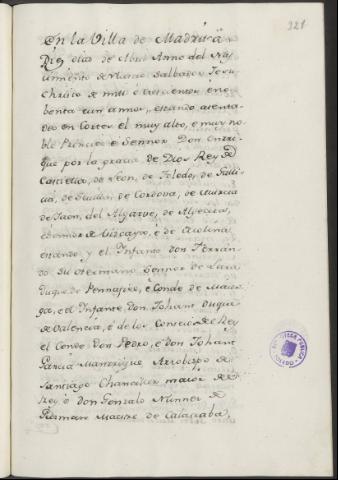 321
En la Villa de Madrid a
Diez dias de Abril Anno del Naz
cimiento de Nuestro Salbador Jesu
Christo de mill e trescientos e no
benta e un annos, estando asenta
do en Cortes el muy alto, e muy no
ble Principe e Sennor Don Enrri
que por la gracia de Dios Rey de
Castiella, de Leon, de Toledo, de Galli
cia, de Sevilla, de Cordova, de Murcia
de Jaen, del Algarve, de Algecira,
e Sennor de Vizcaya, e de Molina
estando y el Infante don Ferran
do su hermano Sennor de Lara
Duque de Pennafiel, e Conde de Mayor
ga, e el Infante Don Johan Duque
de Valencia, e de los Consejos del Rey
el Conde Don Pedro, e don Johan
Garcia Manrrique Arzobispo de
Santiago Chanciller maior del
Rey, e don Gonzalo Nunnez de
Guzman Maestre de Calatraba,
BIBLIOTECA PUBLICA
TOLEDO